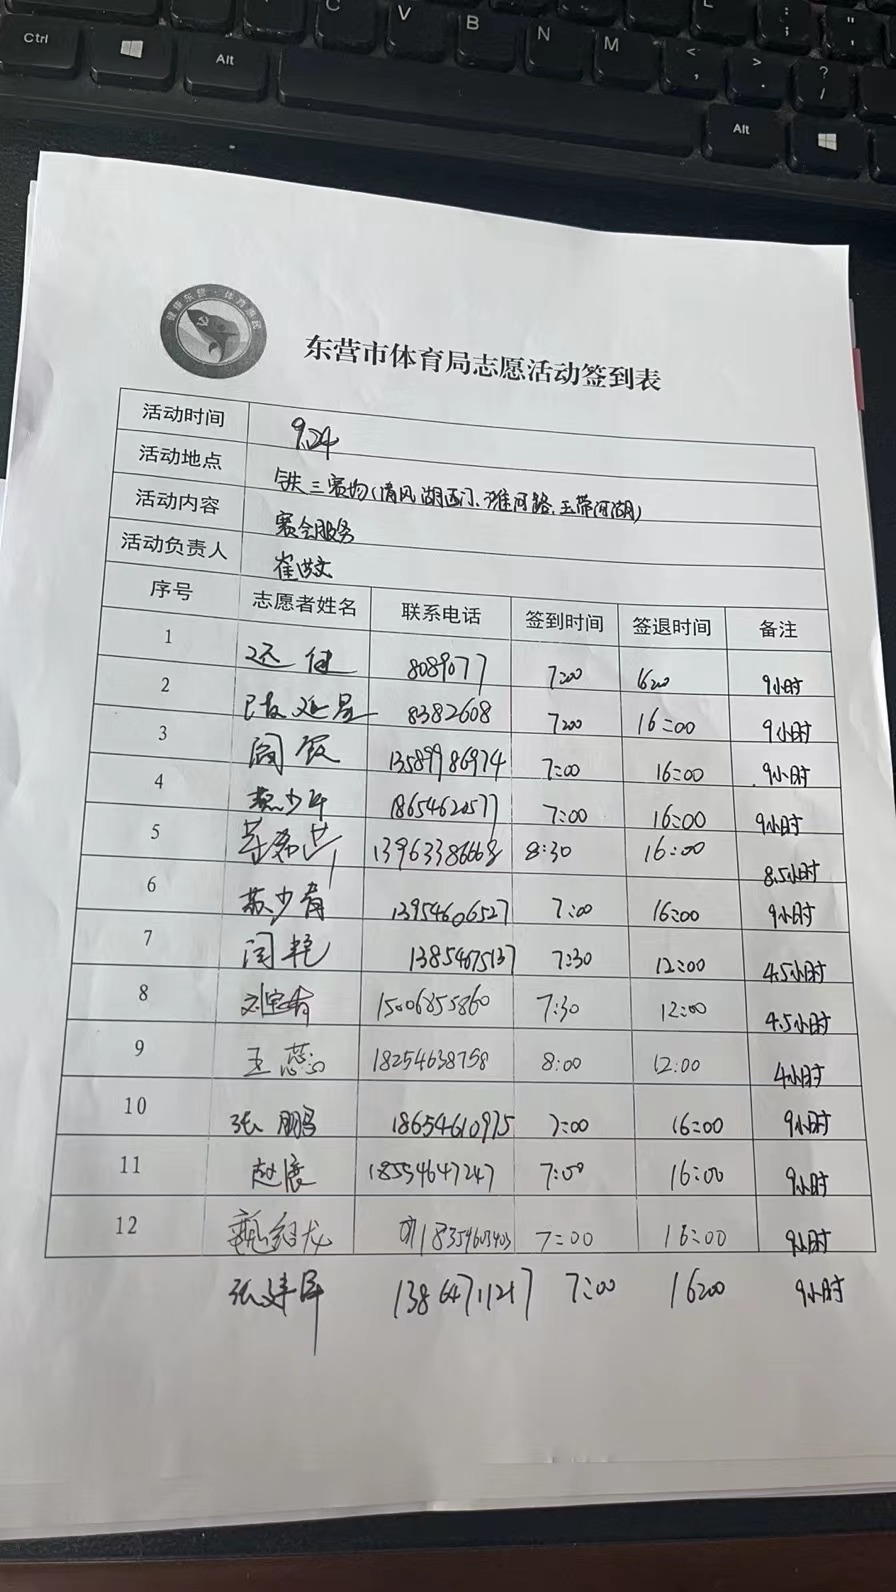 Ctrl Alt C V B N M < , > . ? / L : ; " ' Alt
健康东营·体育惠民
东营市体育局志愿活动签到表
活动时间 9.24
活动地点 铁三赛场(清风湖西门、淮河路、玉带河湖)
活动内容 赛会服务
活动负责人 崔洪文
序号 志愿者姓名 联系电话 签到时间 签退时间 备注
1 8089077 7:00 16:00 9小时
2 8382608 7:00 16:00 9小时
3 13589986974 7:00 16:00 9小时
4 18654620577 7:00 16:00 9小时
5 13963386668 8:30 16:00 8.5小时
6 苏少青 13954606527 7:00 16:00 9小时
7 闫艳 13854675137 7:30 12:00 4.5小时
8 15006855860 7:30 12:00 4.5小时
9 王蕊 18254638758 8:00 12:00 4小时
10 张鹏 18654610975 7:00 16:00 9小时
11 赵展 18554647247 7:00 16:00 9小时
12 7:00 16:00 9小时
7:00 16:00 9小时